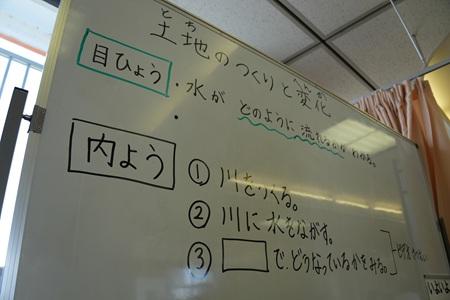 とち
土地のつくりと変化
目ひょう
・水が どのように 流れるか わかる。
・
内よう
① 川をつくる。
② 川に水をながす。
③ □で、どうなっているかをみる。